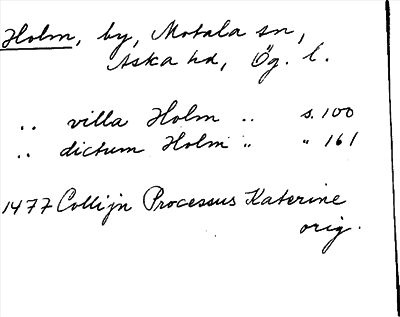 Holm, by, Motala sn,
Aska hd, Ög. l.
.. villa Holm .. s. 100
.. dictum Holm " " 161
1477 Collijn Processus Katerine
orig.